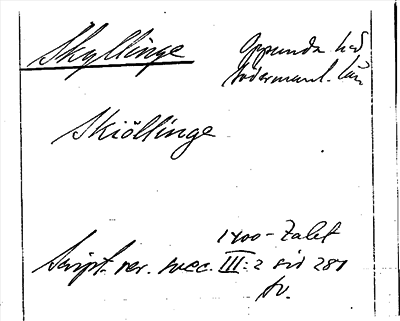 Skyllinge
Oppunda hd
Södermanl. län
Skiöllinge
1400-talet
Script. rer. svec. III:2 sid 281
fv.